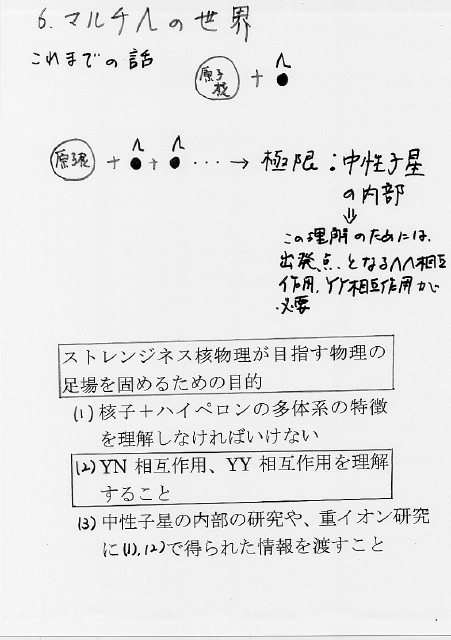 6. マルチΛの世界
これまでの話
Λ
原子核 + ●
Λ Λ
原子核 + ● + ● ・・・ → 極限：中性子星
の内部
⇓
この理解のためには、
出発点となるΛΛ相互
作用、YY相互作用が
必要
ストレンジネス核物理が目指す物理の
足場を固めるための目的
(1) 核子＋ハイペロンの多体系の特徴
を理解しなければいけない
(2) YN 相互作用、YY 相互作用を理解
すること
(3) 中性子星の内部の研究や、重イオン研究
に(1),(2)で得られた情報を渡すこと